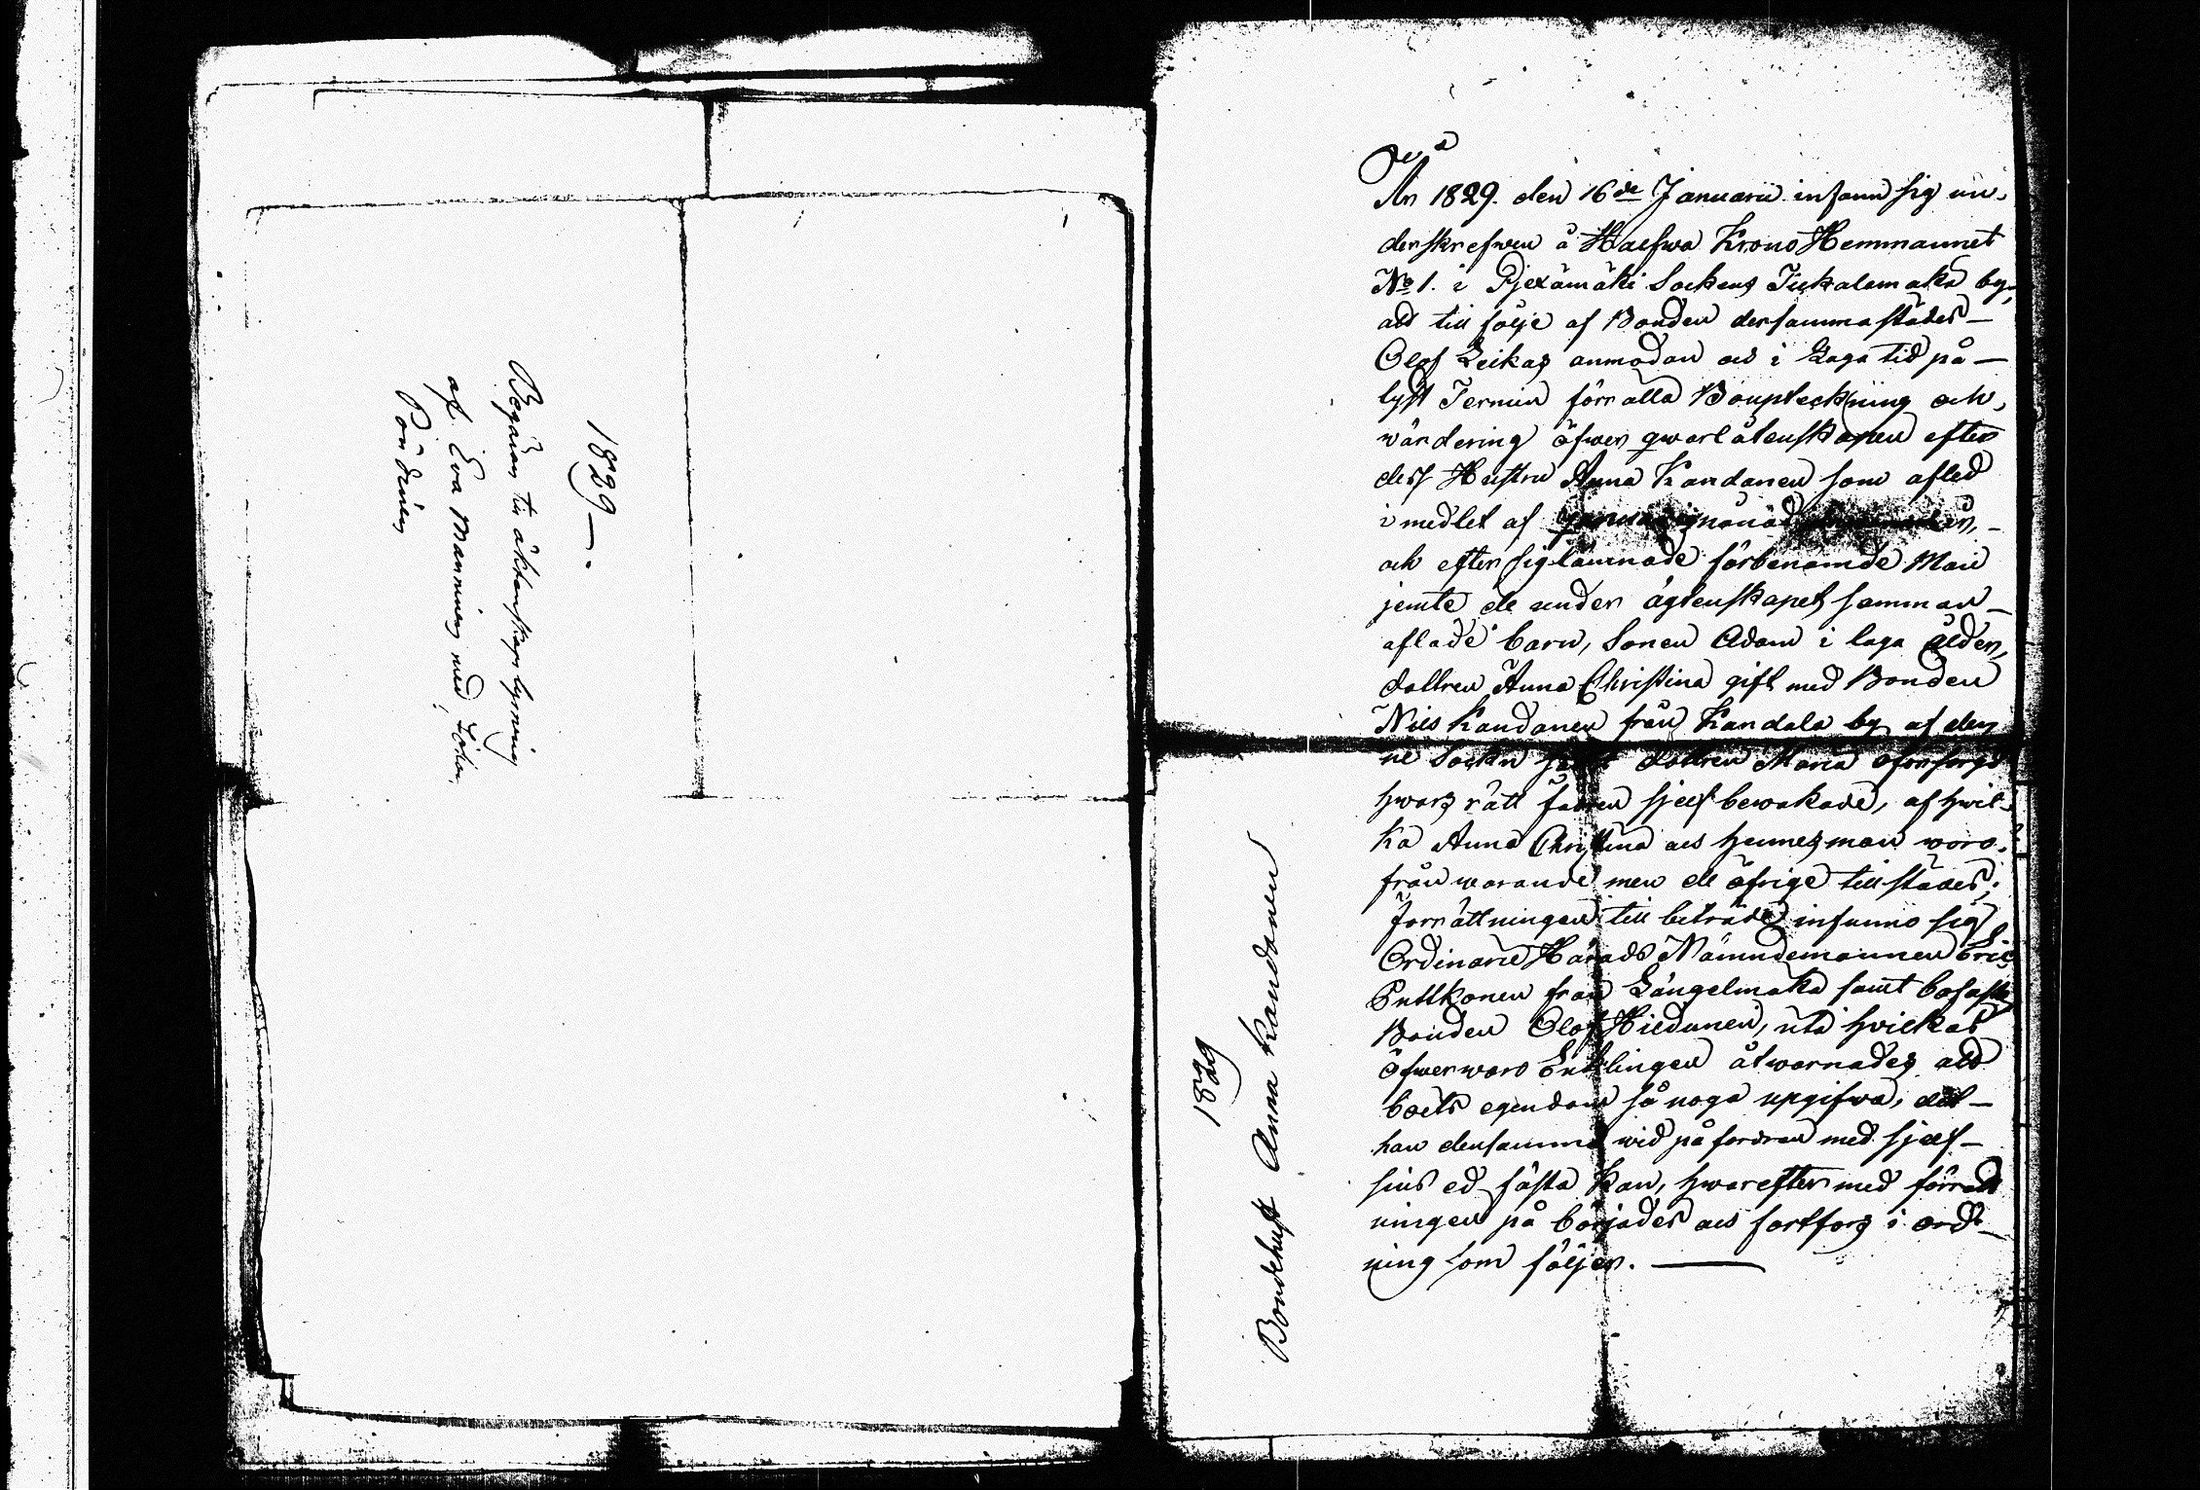 1829 —
Begäran til äktenskaps lysning
af Eva Manninen med Johan
Pöndinen
1829
Bondehust Anna Kandanen
År 1829. den 16de Januarii infann sig un,
derskrefwen å Halfwa Krono Hemmannet
No 1. i Pjexämäki Sockens Tickalamaka by,
att till följe af Bonden dersammastädes —
Olof Leikas anmodan och i Laga tid på —
lyst Termin förrätta Bouptekning och,
wärdering öfwer qwarlåtenskapen efter
dess Hustru Anna Kandanen som afled
i medlet af månad —
och efter sig lämnade förbenämde Man
jemte de under ägtenskapet samman —
aflade barn, Sonen Adam i laga ålder,
dottren Anna Christina gift med Bonden
Nils Kandanen från Kandala by af den
ne Sockn dottren Maria oförsörgd
hwars rätt fadren sjelf bewakade, af hwil-
ka Anna Christina och hennes man woro,
frånwarande men de öfrige tillstädes;
förrättningen till beträde infunno sig
Ordinarie Härads Nämndemannen Eric
Puttkonen från Längelmaka samt bofaste
Bonden Olof Hiedanen, uti hvilkas
öfwerwaro Enklingen åtwarnades att
boets egendom så noga upgifwa, att —
han densamma wid påfordran med sjelf —
sins ed fästa kan, hwarefter med förrätt
ningen på börjades och fortfors i ord —
ning som följer. —